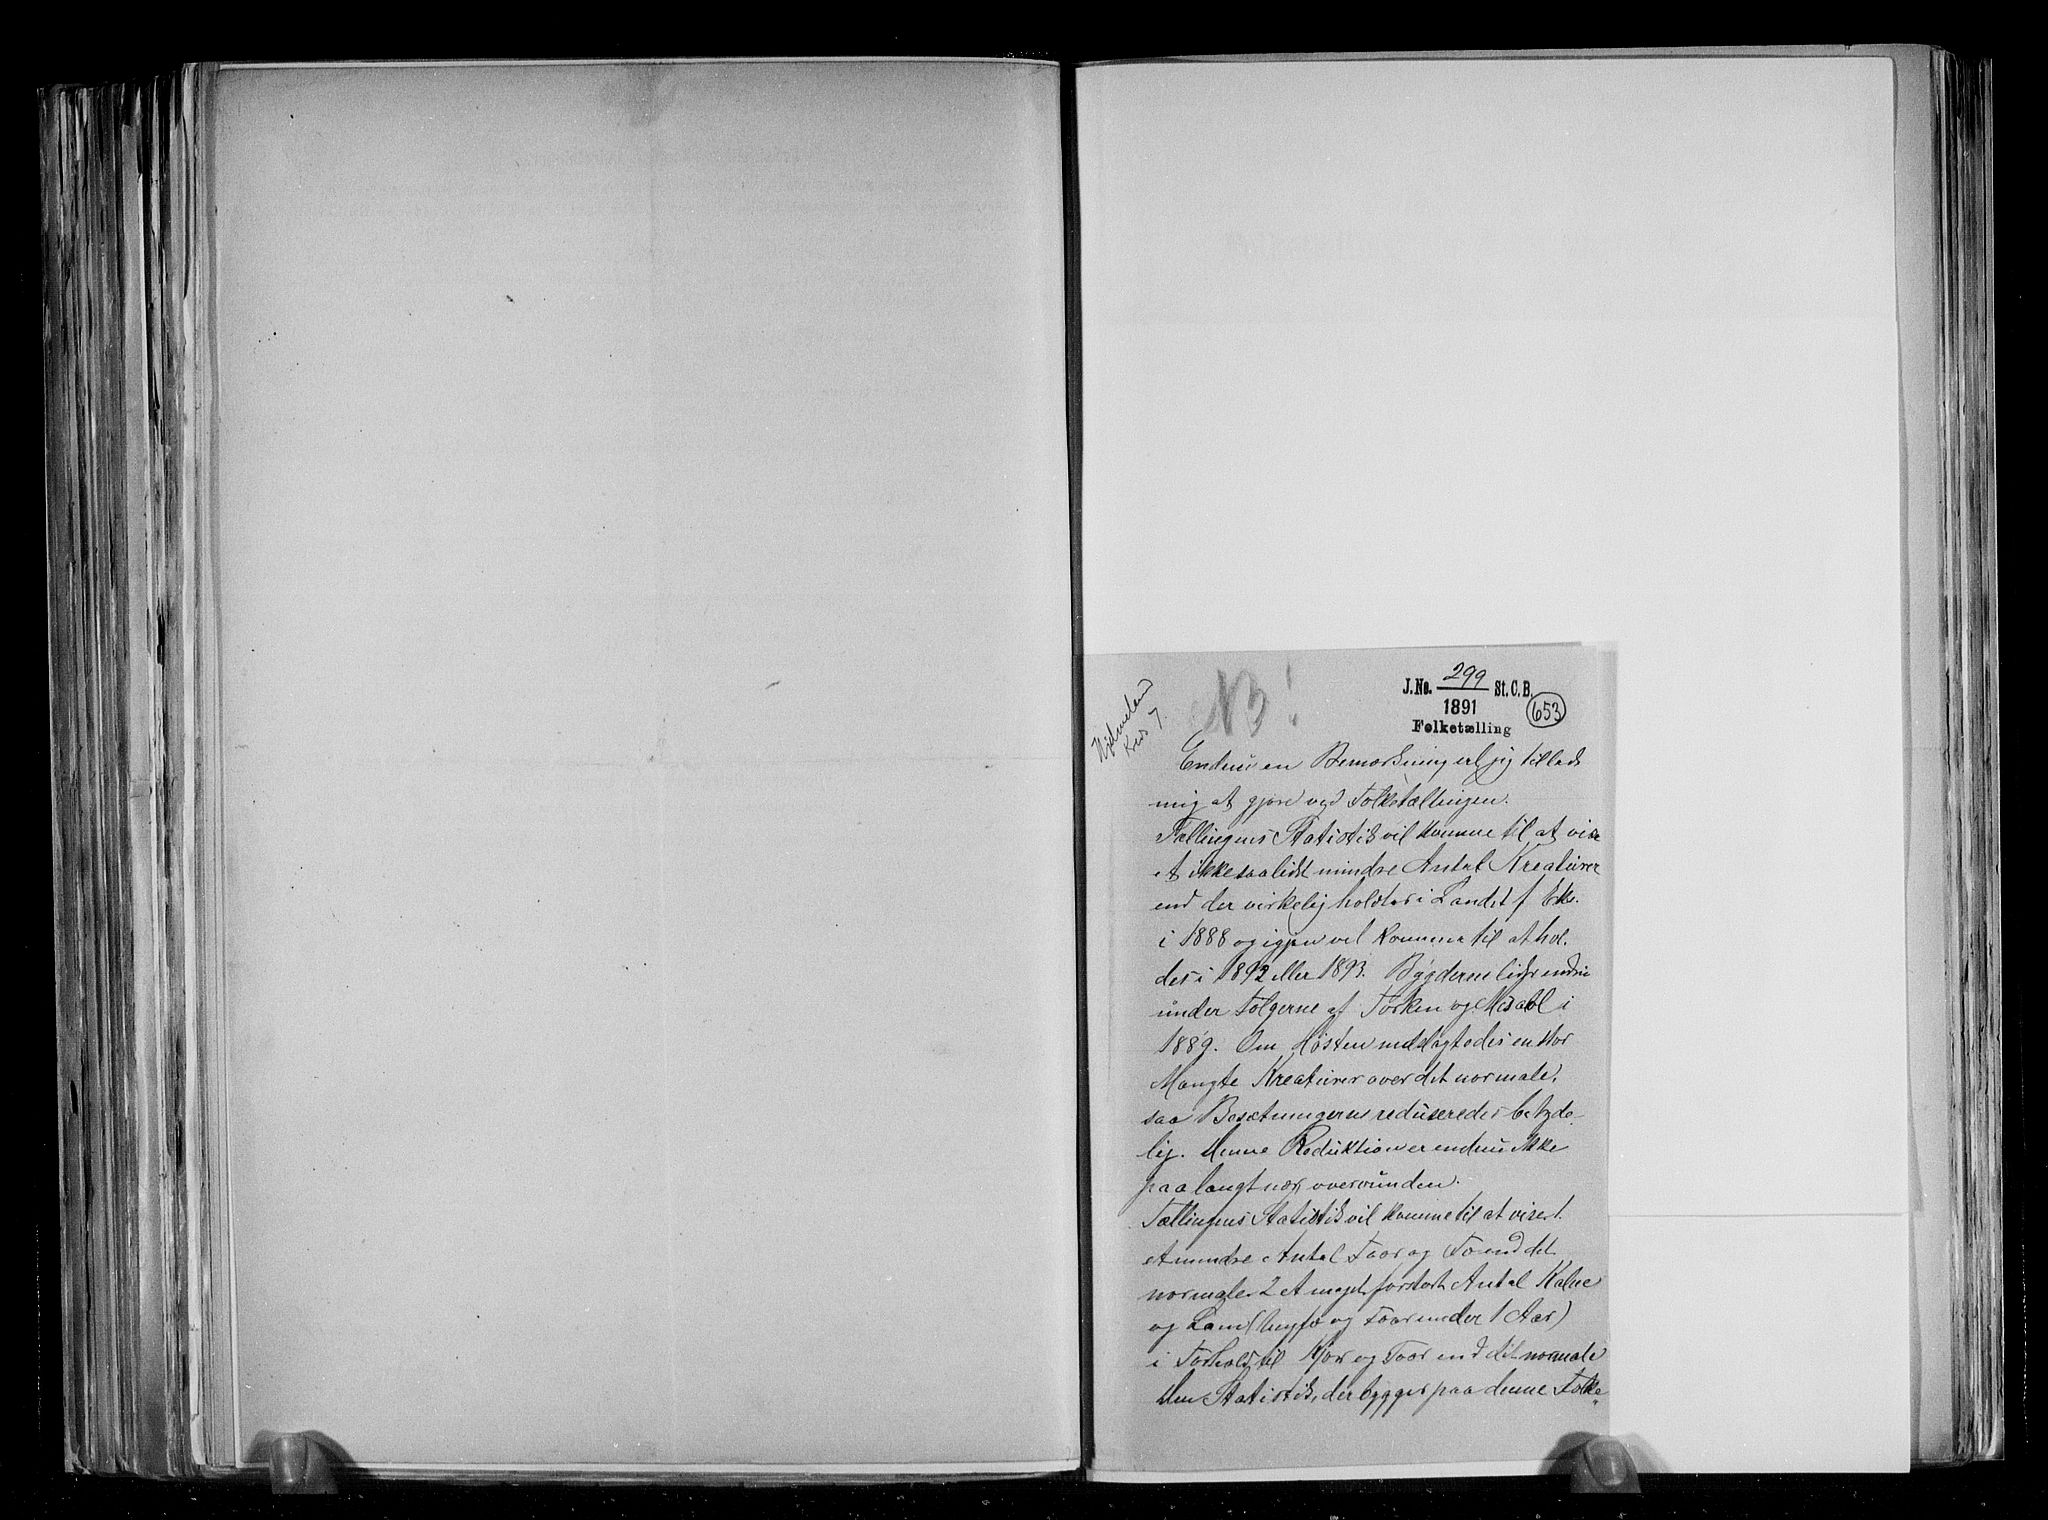 NB!
J.No. 299 St.C.B.
1891
653
Folketælling
Hjelmeland
Kreds 7.
Endnu en Bemærkning vil jeg tillade
mig at gjøre ved Folketællingen.
Tællingens Statistik vil komme til at vise
et ikke saa lidet mindre Antal Kreaturer
end der virkelig holdtes i Landet f Eks.
i 1888 og igjen vil komme til at hol-
des i 1892 eller 1893. Bygderne lider endnu
under Følgerne af Tørken og i
1889. Om Høsten nedslagtedes en stor
Mængde Kreaturer over det normale,
saa Besætningerne reduseredes betyde-
lig. Denne Reduktion er endnu ikke
paa langt nær overvunden.
Tællingens Statistik vil komme til at vise 1.
et mindre Antal Faar og Fæ end det
normale 2 et meget Antal Kalve
og Lam (Ungfæ og Faar under 1 Aar)
i Forhold til Kjør og Faar end det normale
Den Statistik, der bygges paa denne Folke-